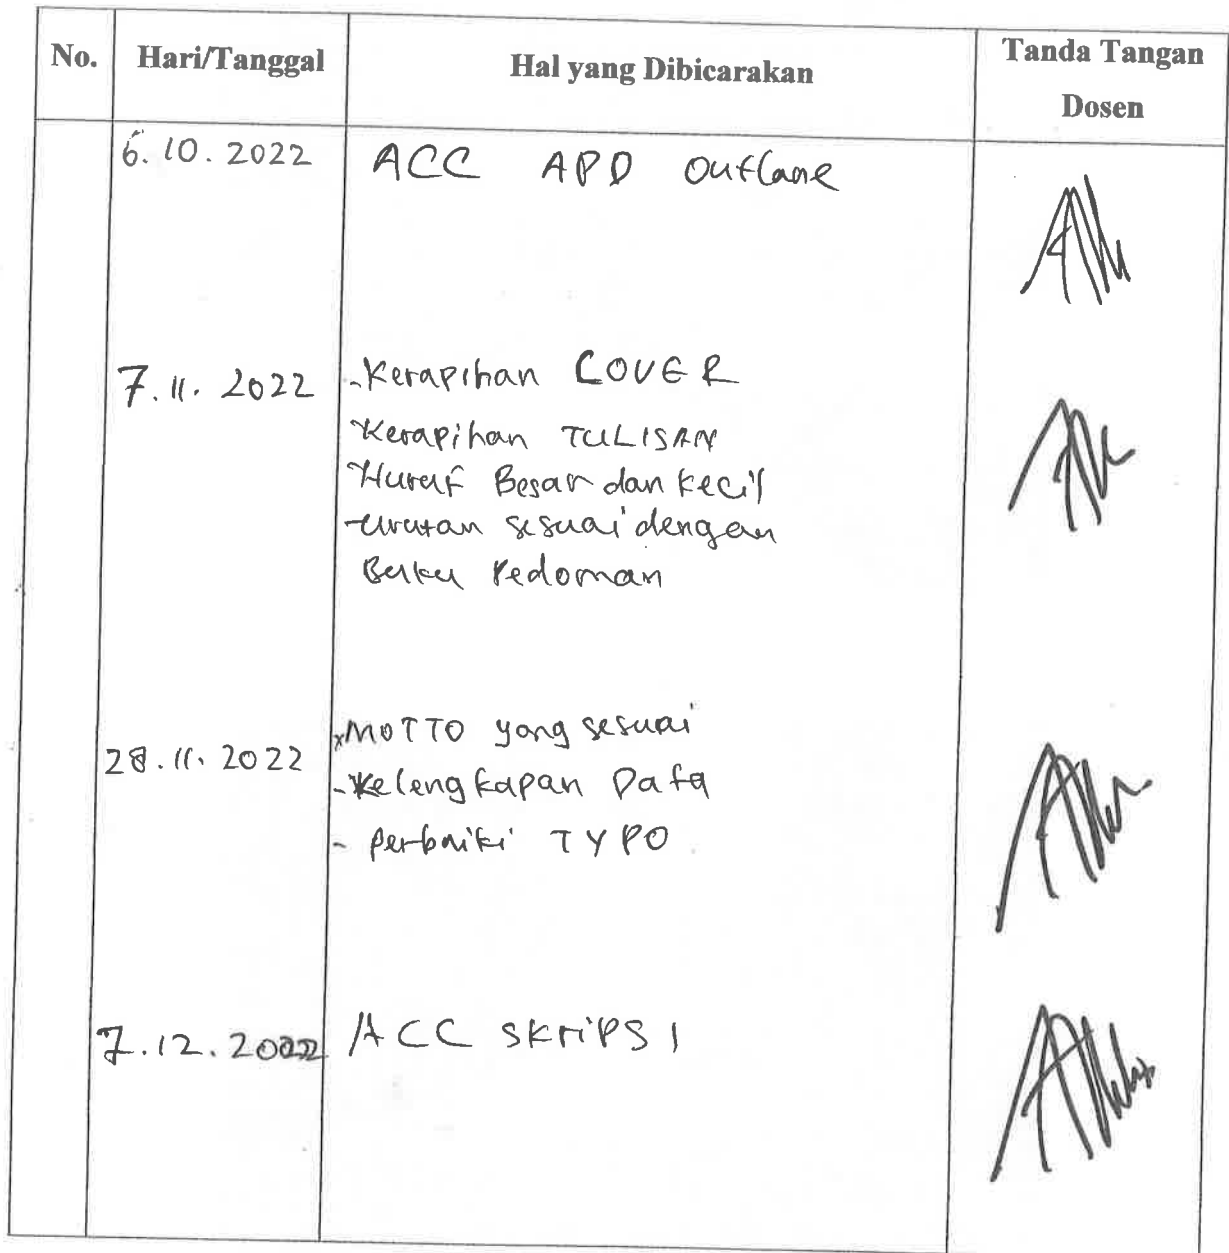 No. Hari/Tanggal Hal yang Dibicarakan Tanda Tangan
Dosen
6.10.2022 ACC APD Outlane
7.11.2022 -Kerapihan COVER
-Kerapihan TULISAN
-Huruf Besar dan kecil
-urutan sesuai dengan
Buku Pedoman
28.11.2022 MOTTO yang sesuai
-Kelengkapan Data
- perbaiki TYPO
7.12.2022 ACC SKRIPSI